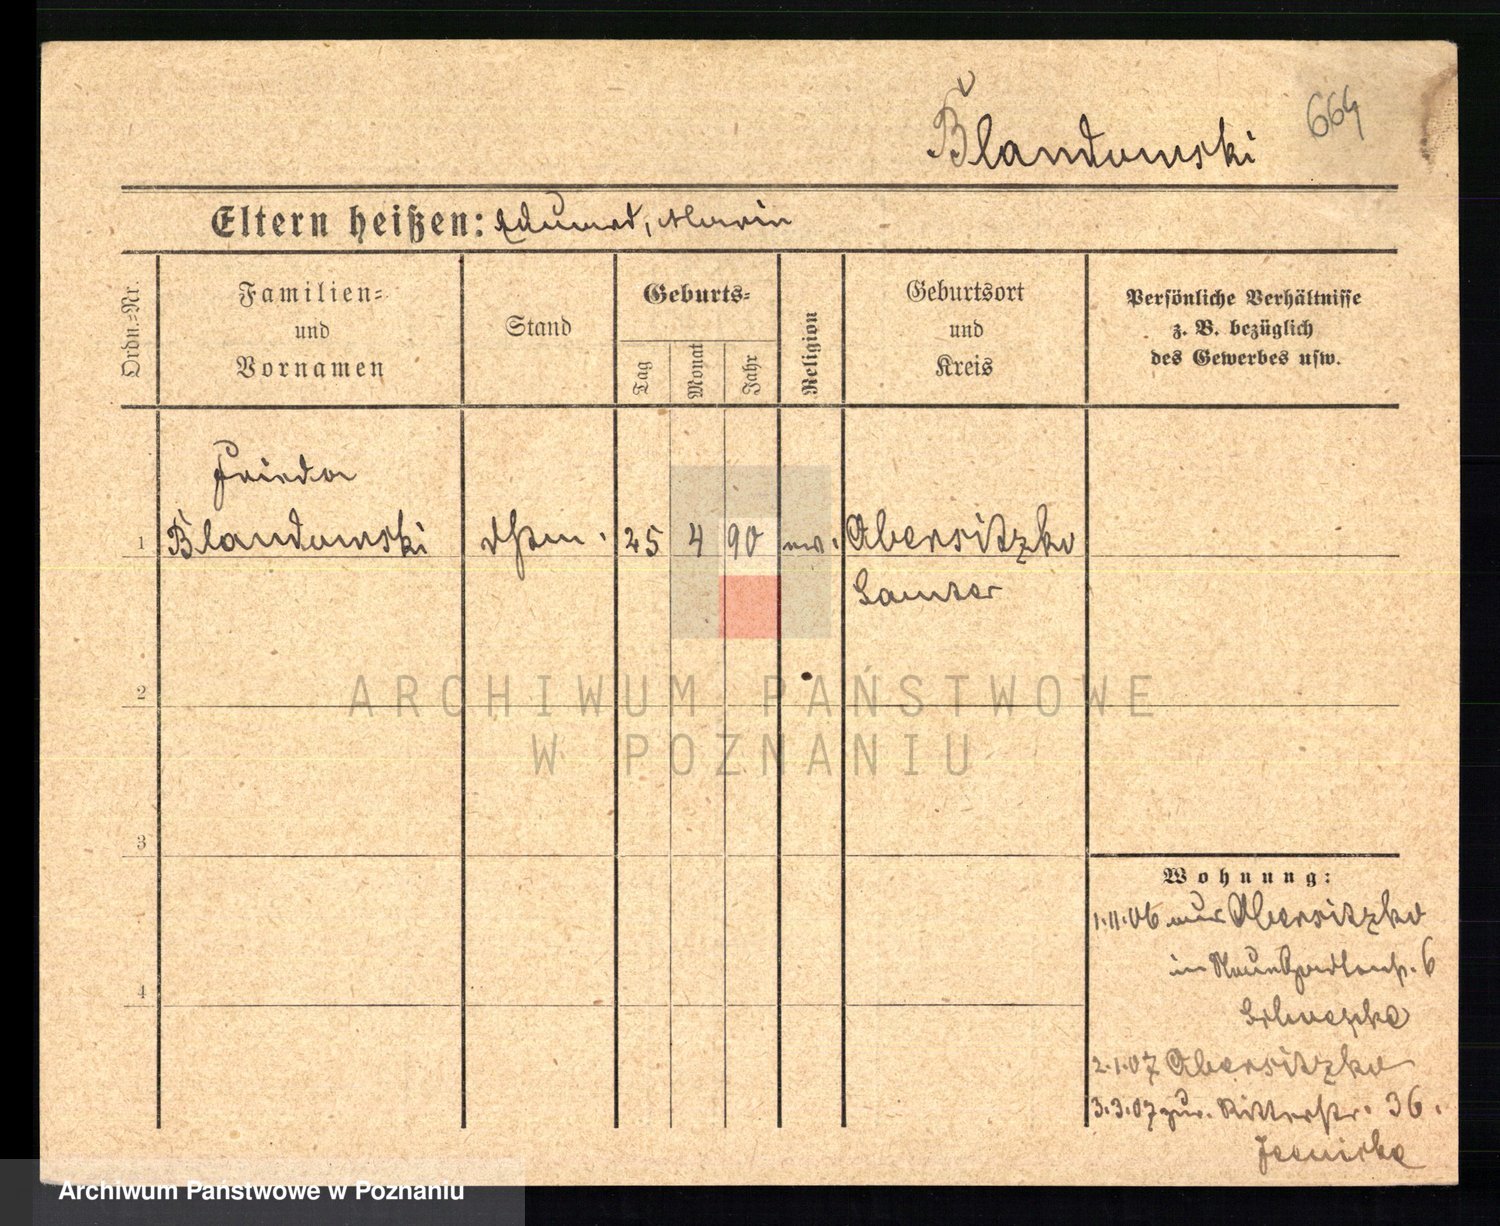 Blandowski
664
Eltern heißen: Eduard, Marie
Ordn.-Nr.
Familien-
und
Vornamen
Stand
Geburts-
Tag
Monat
Jahr
Religion
Geburtsort
und
Kreis
Persönliche Verhältnisse
z. B. bezüglich
des Gewerbes usw.
Frieda
1 Blandowski 25 4 90 ev. Obersitzko
Samter
2
3
4
ARCHIWUM PAŃSTWOWE
W POZNANIU
Wohnung:
1.11.06 aus Obersitzko
in 6
2.1.07 Obersitzko
3.3.07 zur. Ritterstr. 36.
Archiwum Państwowe w Poznaniu